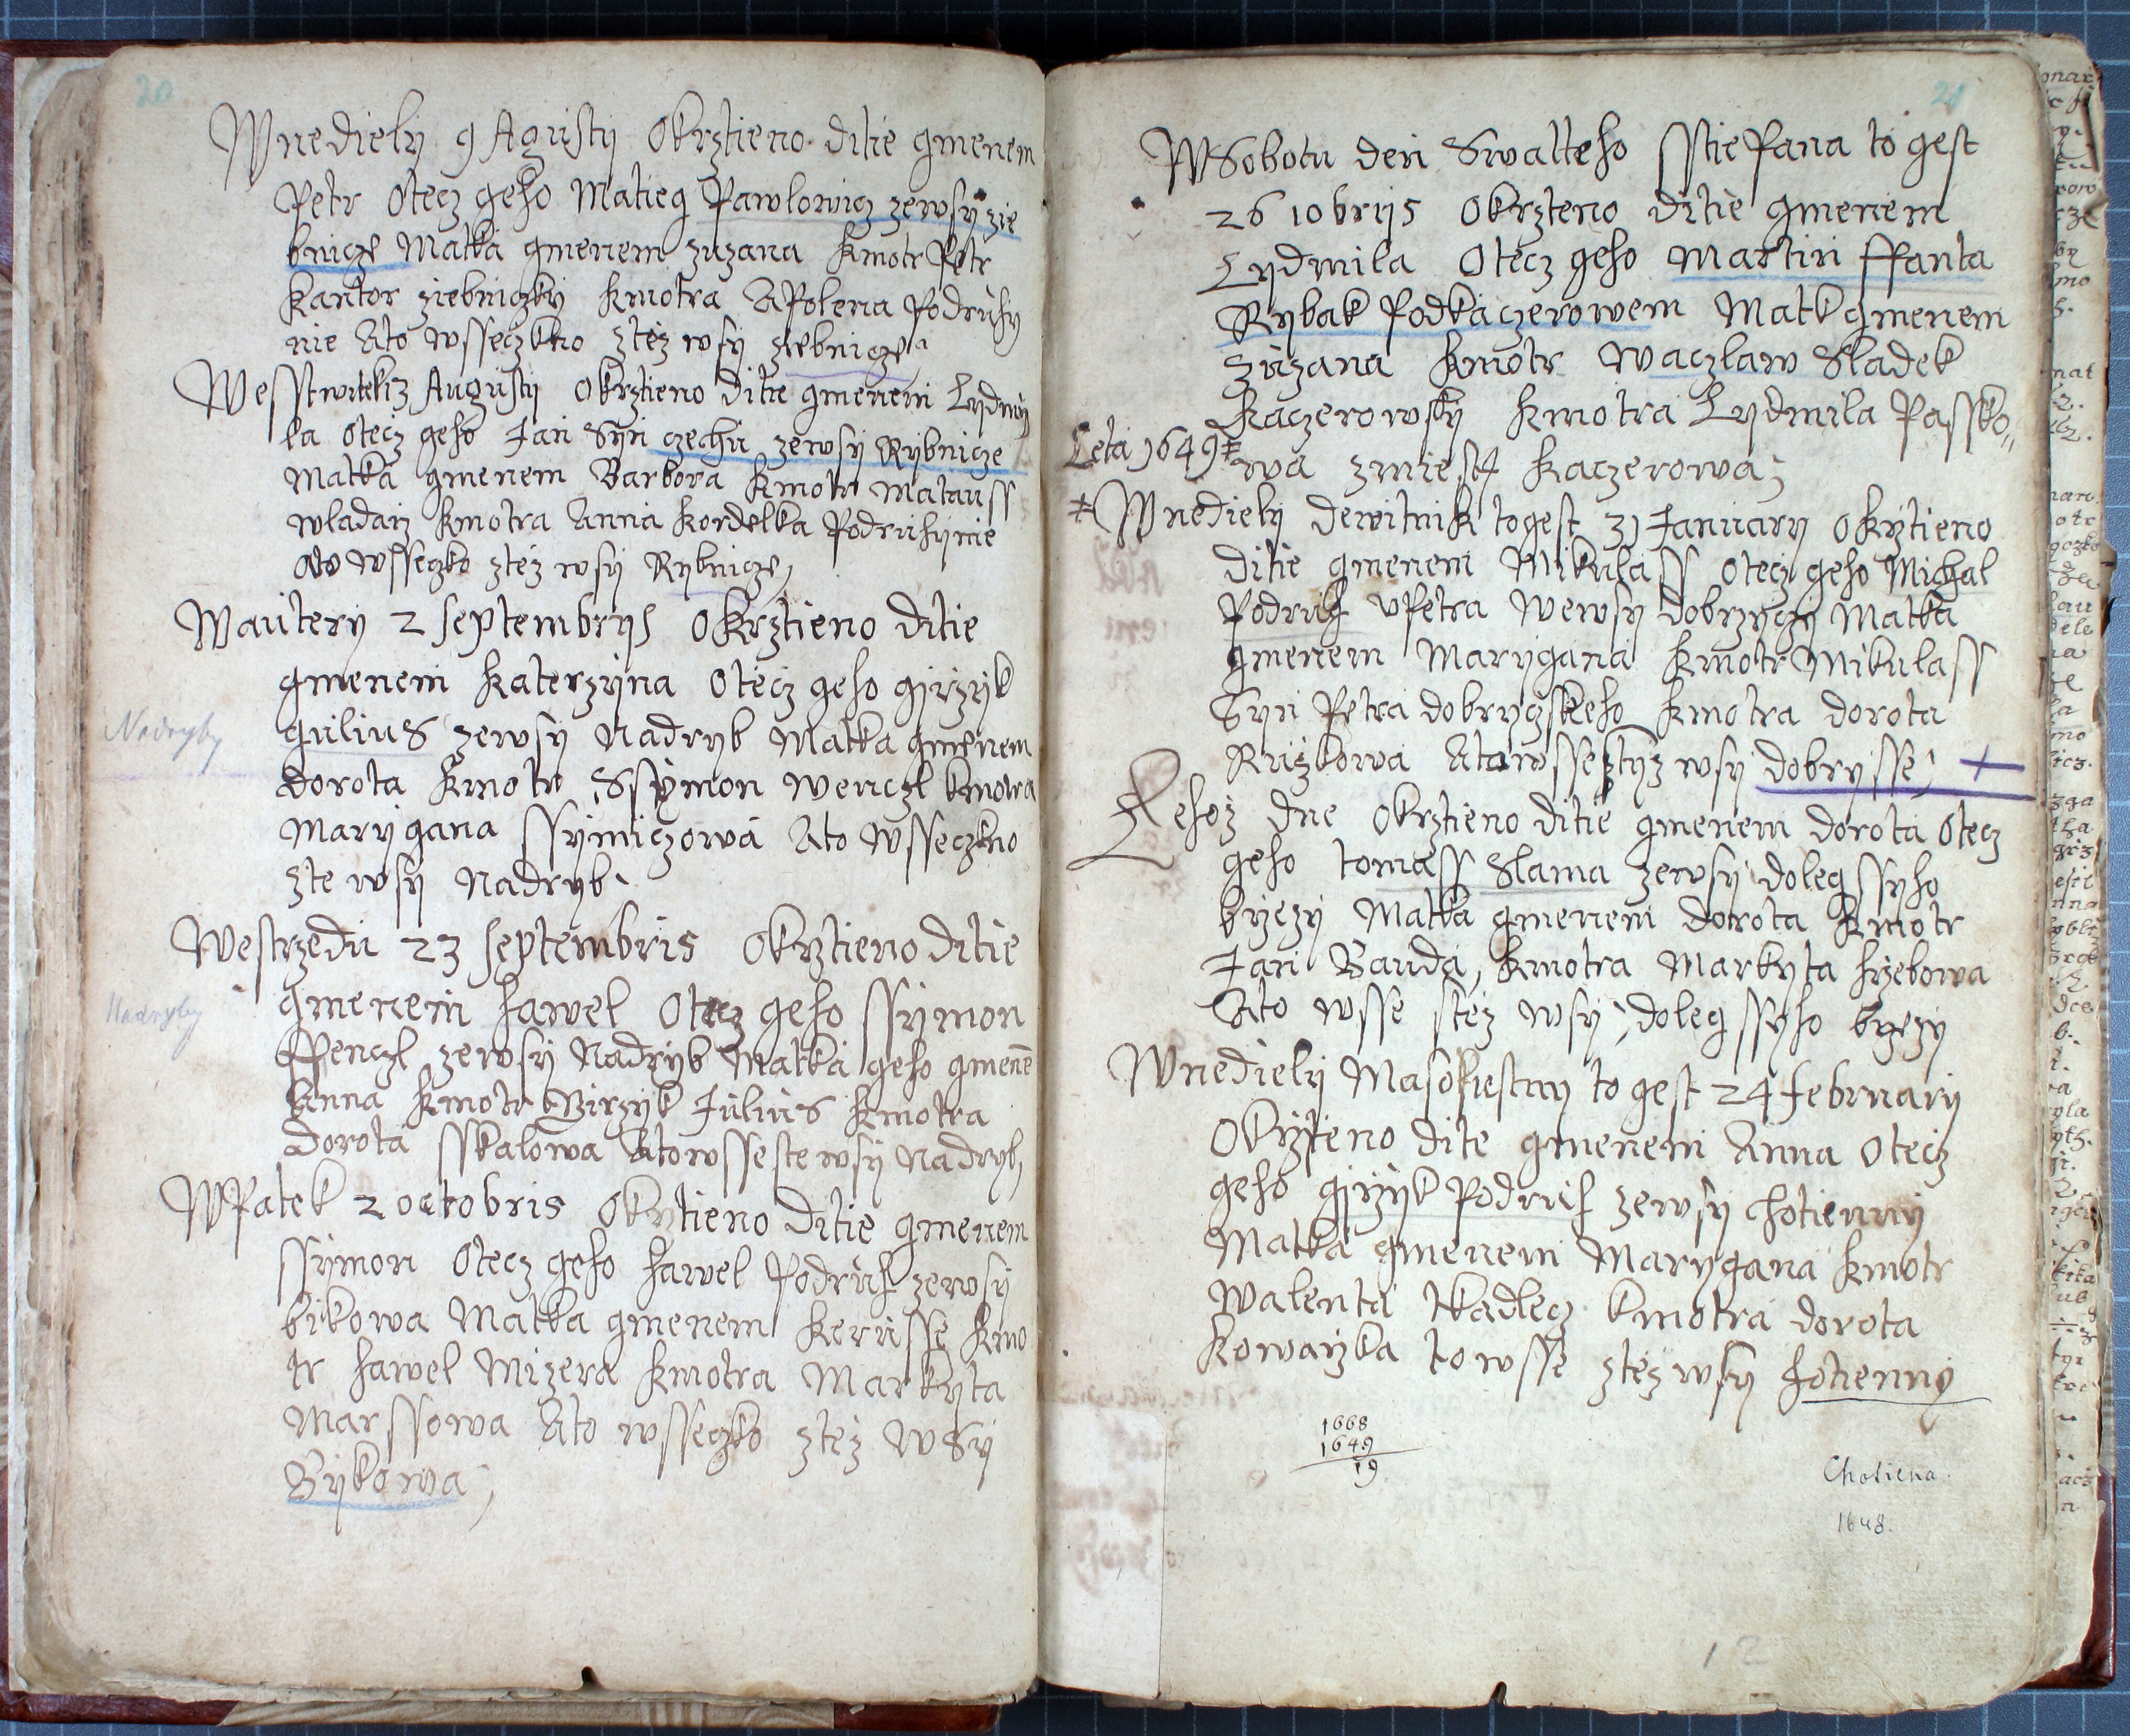 20
Wnediely 9 Agusty Okrztieno ditie gmenem
Petr Otecz geho Matieg Pawlowicz zewsy zie
bnicze Matka gmenem zuzana kmotr Petr
kantor ziebniczky kmotra Apolena Podruhy
nie Ato wsseczkno ztez wsy ziebnicze
We Augusty Okrztieno ditie gmenem Lydmy
la otecz geho Jan Syn czechu zewsy Rybnicze
Matka gmenem Barbora kmotr Matauss
wladarz kmotra Anna kordelka Podruhynie
Ato wsseczko ztez wsy Rybnicze,
Wautery 2 septembrys Okrztieno ditie
gmenem Katerzyna Otecz geho gjrzyk
gulius zewsy Nadryb Matka gmenem
dorota kmotr Ssymon wenczl kmotra
Marygana ssymiczowa Ato wsseczkno
zte wsy Nadryb.
Nadryby
Westrzedu 23 septembris Okrztieno ditie
gmenem hawel Otecz geho ssymon
ffenczl zewsy Nadryb Matka geho gmenē
Anna kmotr Girzyk Julius kmotra
dorota sskalowa Atowsse ste wsy Nadryb,
Nadryby
WPatek 2 octobris Okrztieno ditie gmenem
ssymon Otecz geho hawel Podruh zewsy
bikowa Matka gmenem kerusse kmo
tr hawel Mizera kmotra Markyta
Marssowa Ato wsseczko ztez wsy
Bykowa;
21
WSobotu den Swatteho Sstiepana to gest
26 10brys Okrzteno ditie gmenem
Lydmila Otecz geho Martin ffanta
Rybak Podkaczerowem Matk gmenem
zuzana kmotr waczlaw Sladek
kaczerowsky kmotra Lydmila Passko,,
wa zmiesta kaczerowa;
Leta 1649 #
# Wnediely dewitnik togest 31 January Okrztieno
ditie gmenem Mikulass Otecz geho Michal
Podruh vPetra wewsy dobrzyczy Matka
gmenem Marygana kmotr Mikulass
Syn Petra dobryczskeho kmotra dorota
Ruzkowa Atowsse ztyz wsy dobrysse;
Tehoz dne Okrztieno ditie gmenem dorota Otecz
geho tomass Slama zewsy dolegssyho
brzezy Matka gmenem dorota kmotr
Jan Bauda, kmotra Markyta hrzebowa
Ato wsse stez wsy, dolegssyho brzezy
Wnediely Masopustny to gest 24 february
Okrzteno dite gmenem Anna Otecz
geho gjrzyk Podruh zewsy Chotienny
Matka gmenem Marygana kmotr
walenta tkadlecz kmotra dorota
kowarzka towsse ztez wsy hotienny
1668
1649
19
Chotiena.
1648.
12